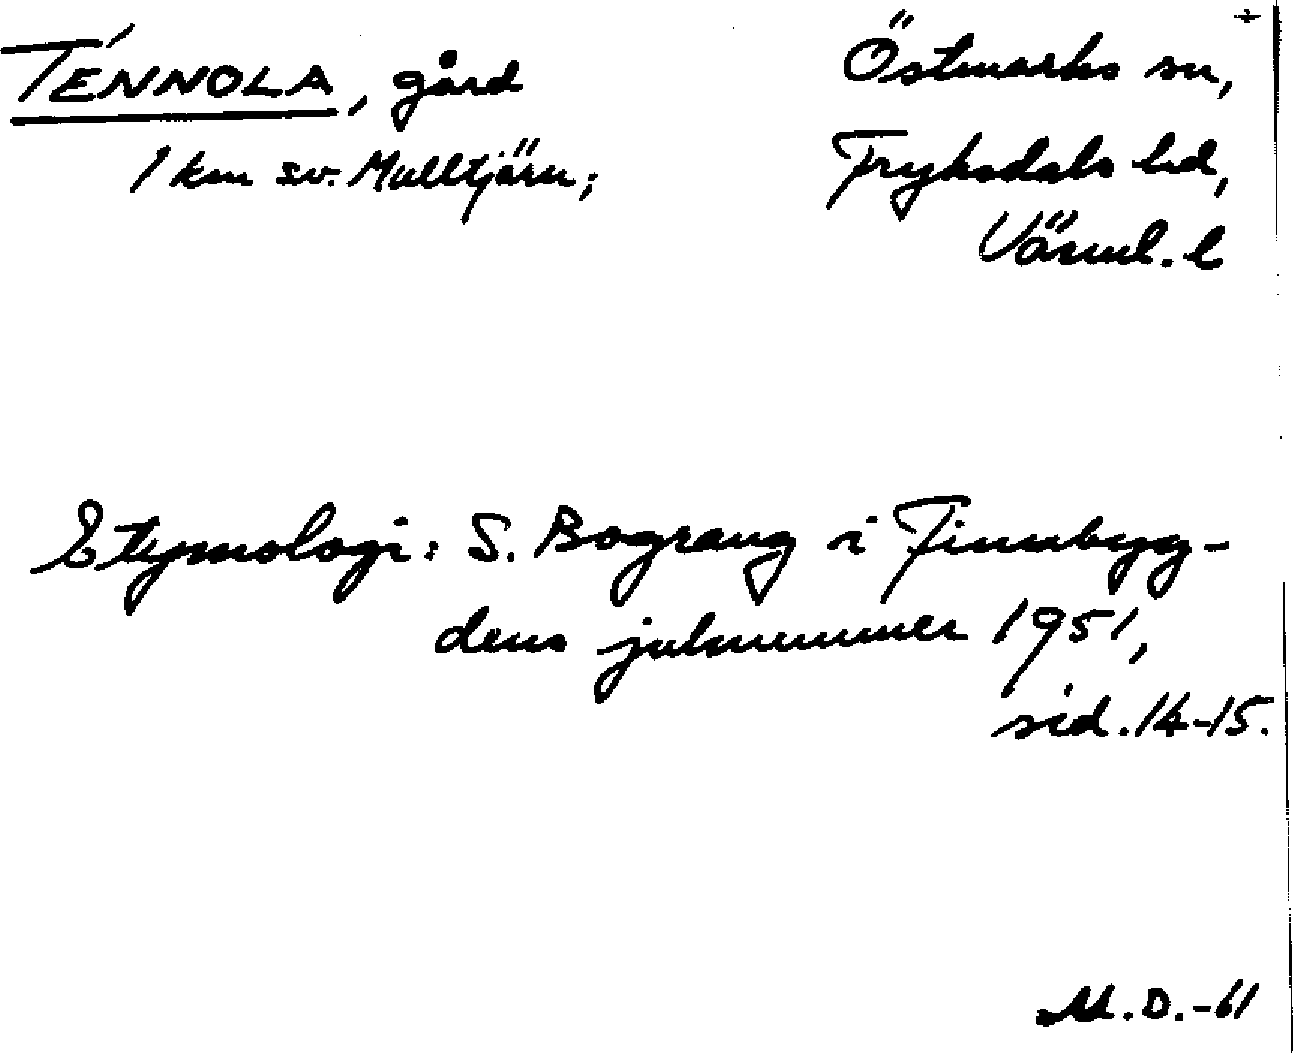 TÉNNOLA, gård
1 km sv. Mulltjärn;
Östmarks sn,
Fryksdals hd,
Värml. l
Etymologi: S. Bograng i Finnbyg-
dens julnummer 1951,
sid. 14-15.
M.D.-61